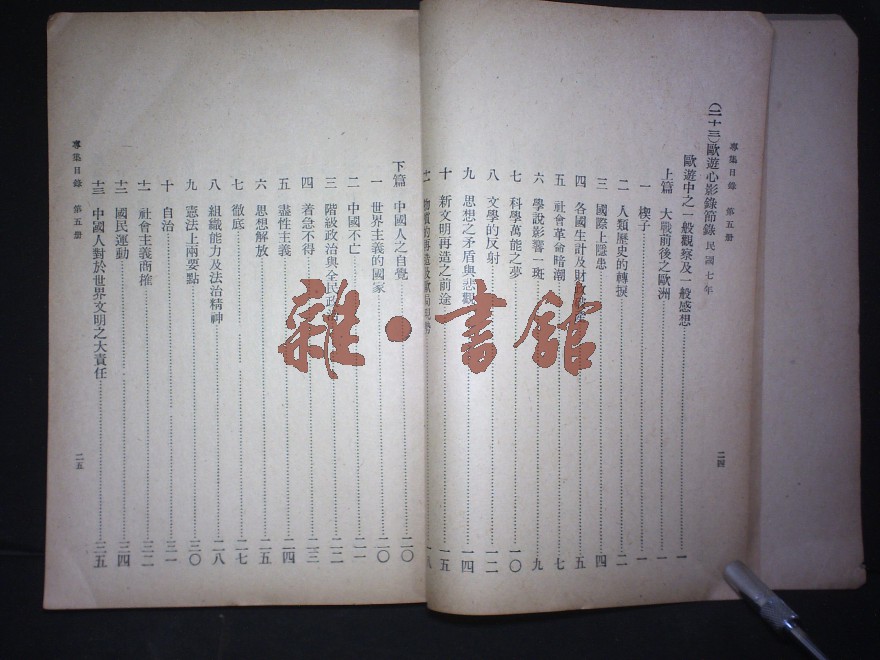 專集目錄 第五册
二四
(二十三)歐遊心影錄節錄 民國七年
歐遊中之一般觀察及一般感想……一
上篇 大戰前後之歐洲……一
一 楔子……一
二 人類歷史的轉捩……二
三 國際上隱患……四
四 各國生計及財……五
五 社會革命暗潮……七
六 學說影響一斑……九
七 科學萬能之夢……一〇
八 文學的反射……一二
九 思想之矛盾與悲觀……一四
十 新文明再造之前途……一五
十一 物質的再造及歐局現勢……一八
下篇 中國人之自覺……二〇
一 世界主義的國家……二〇
二 中國不亡……二一
三 階級政治與全民政治……二二
四 着急不得……二三
五 盡性主義……二四
六 思想解放……二五
七 徹底……二七
八 組織能力及法治精神……二八
九 憲法上兩要點……三〇
十 自治……三一
十一 社會主義商搉……三二
十二 國民運動……三四
十三 中國人對於世界文明之大責任……三五
專集目錄 第五册
二五
雜·書館